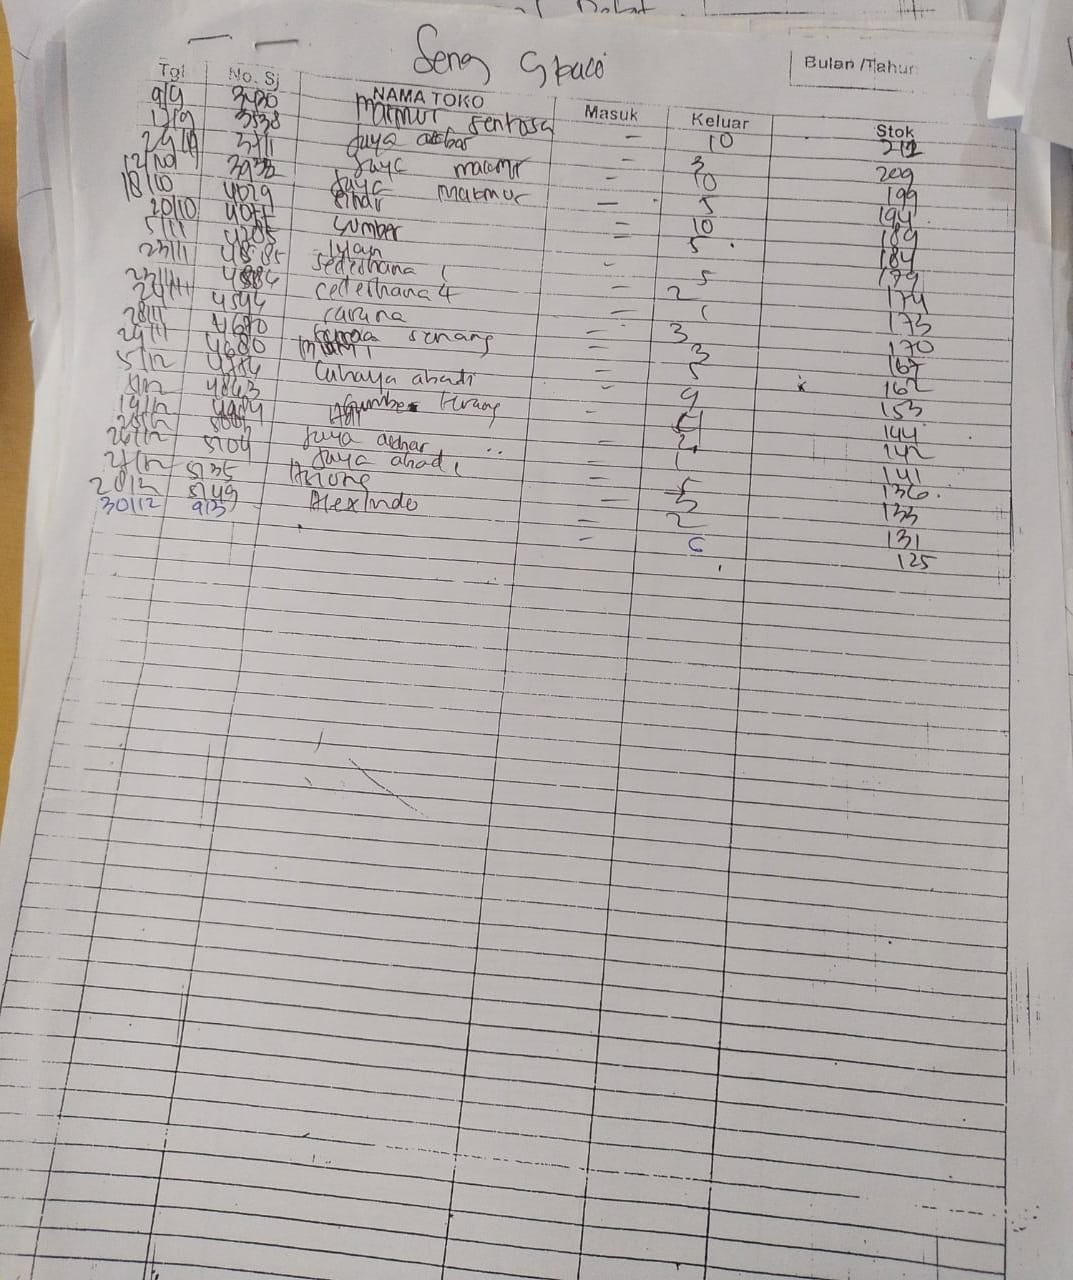 Seng Gbaco
Bulan /Tahun
Tgl No. Sj NAMA TOKO Masuk Keluar Stok
9/9 3430 Makmur Sentosa - 10 212
17/9 3538 Jaya akbar - 3 209
29/9 3711 Jaya makmur - 10 199
12/10 3938 Jaya Makmur - 5 194
18/10 4029 - 10 189
20/10 4055 Sumber = 5 184
5/11 4205 Iyan - 5 179
23/11 Sederhana 1 = 2 174
23/11 4586 Cederhana 4 = 1 173
24/11 4594 Caruna = 3 170
28/11 4670 senang = 3 167
29/11 4680 = 5 162
5/12 4784 Cahaya abadi = 9 153
4863 Sumber Terang - 144
19/12 - 2 142
Jaya akbar - 1 141
26/12 5104 Jaya abadi - 5 136
5135 Asiong = 3 133
28/12 5149 Alexindo = 2 131
30/12 913 = 6 125